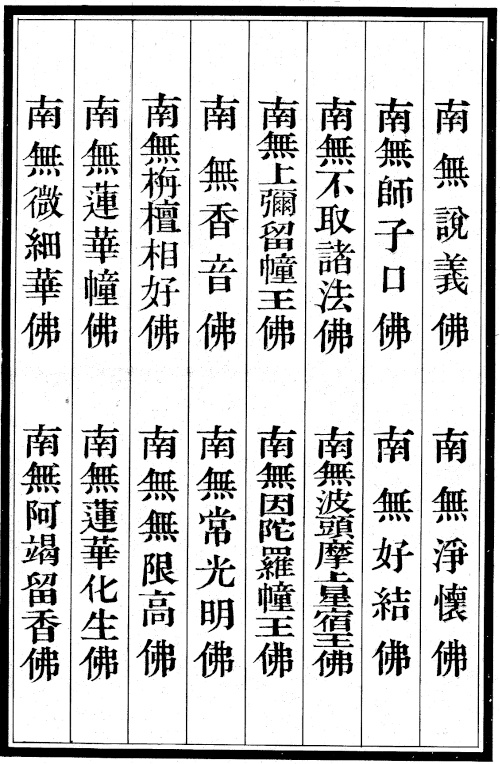 南無說義佛
南無淨懷佛
南無師子口佛
南無好結佛
南無不取諸法佛
南無波頭摩上星宿王佛
南無上彌留幢王佛
南無因陀羅幢王佛
南無香音佛
南無常光明佛
南無栴檀相好佛
南無無限高佛
南無蓮華幢佛
南無蓮華化生佛
南無微細華佛
南無阿竭留香佛